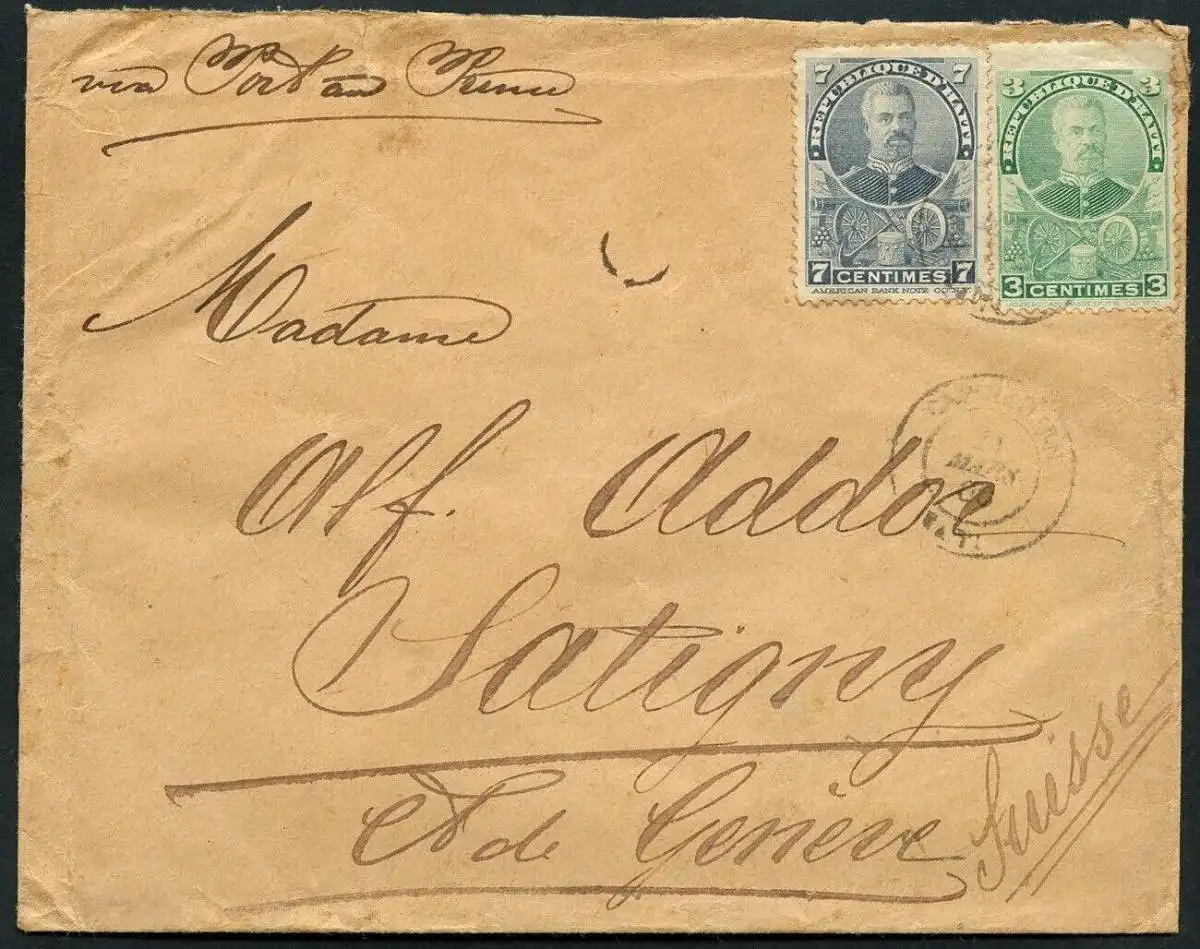 via Port au Prince
7 7
REPUBLIQUE D'HAITI
7 CENTIMES 7
AMERICAN BANK NOTE
3 3
REPUBLIQUE D'HAITI
3 CENTIMES 3
Madame
Alf. Addor
MARS
Satigny
de Genève
Suisse